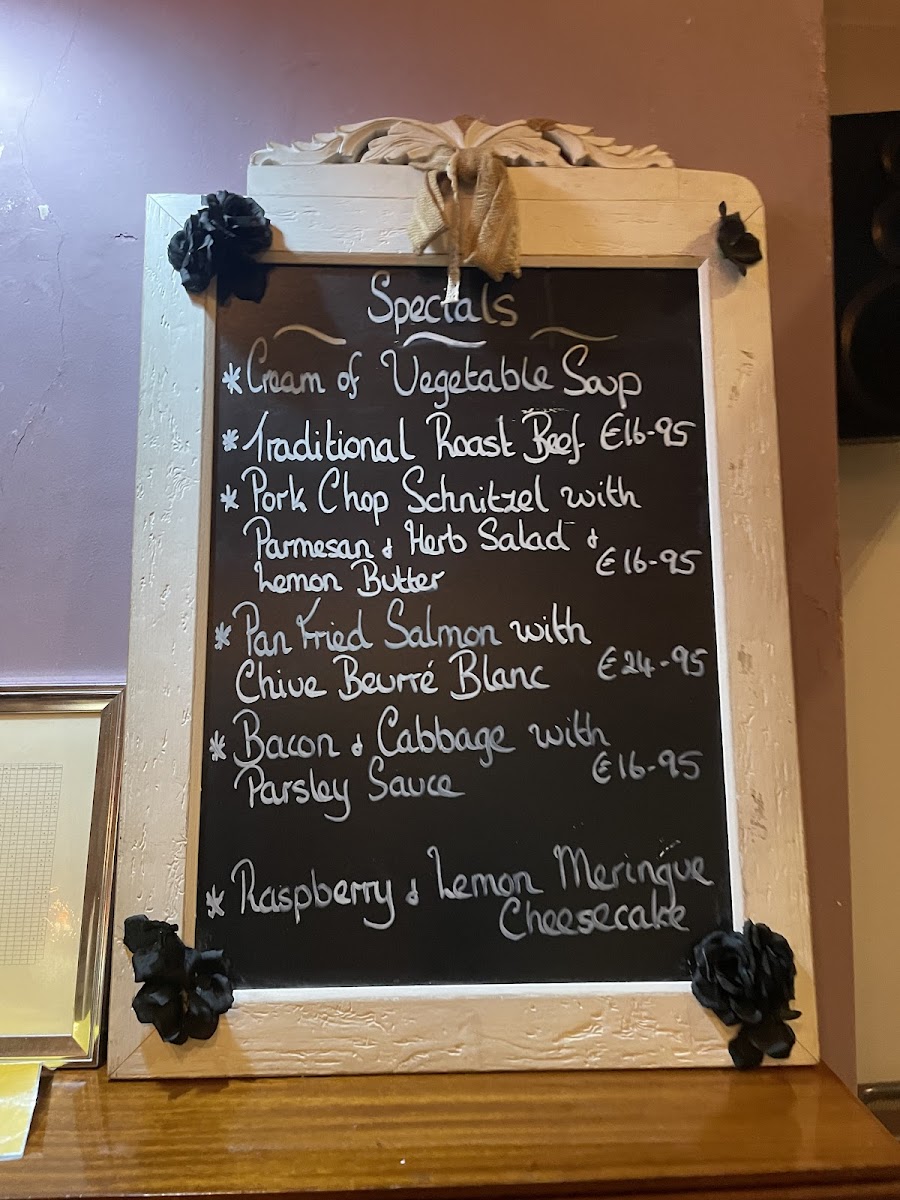 Specials
* Cream of Vegetable Soup
* Traditional Roast Beef €16-95
* Pork Chop Schnitzel with
Parmesan & Herb Salad &
Lemon Butter €16-95
* Pan Fried Salmon with
Chive Beurré Blanc €24-95
* Bacon & Cabbage with
Parsley Sauce €16-95
* Raspberry & Lemon Meringue
Cheesecake